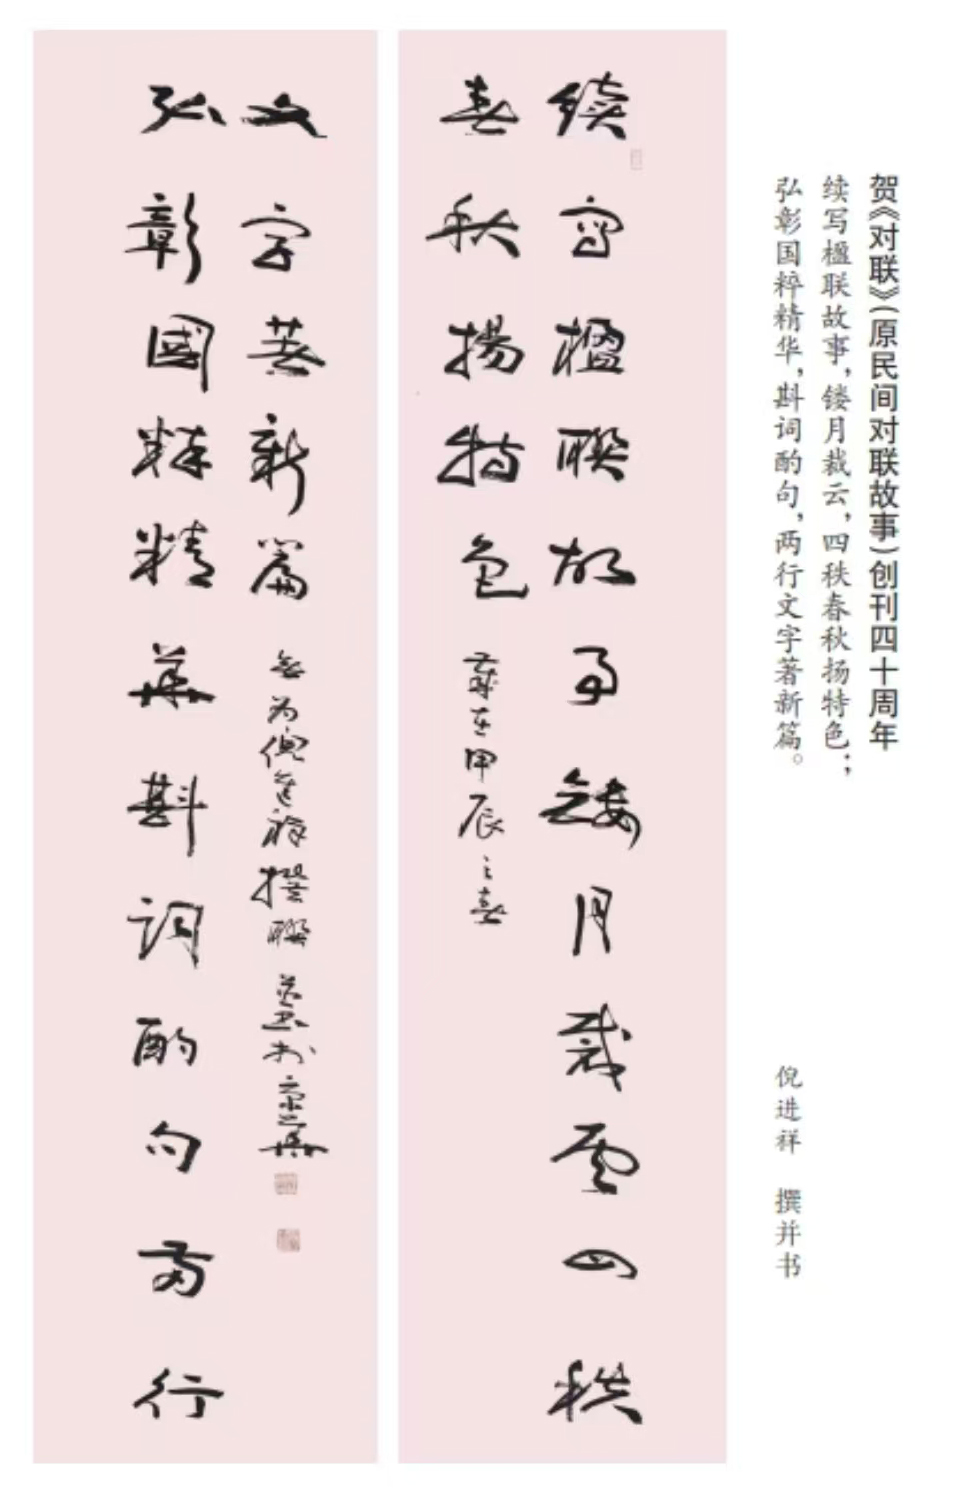 贺《对联》（原民间对联故事）创刊四十周年
续写楹联故事，镂月裁云，四秩春秋扬特色；
弘彰国粹精华，斟词酌句，两行文字著新篇。
倪进祥 撰并书
續寫楹聯故事鏤月裁雲四秩
春秋揚特色
歲在甲辰之春
弘彰國粹精華斟詞酌句兩行
文字著新篇
無為倪進祥撰聯并書於